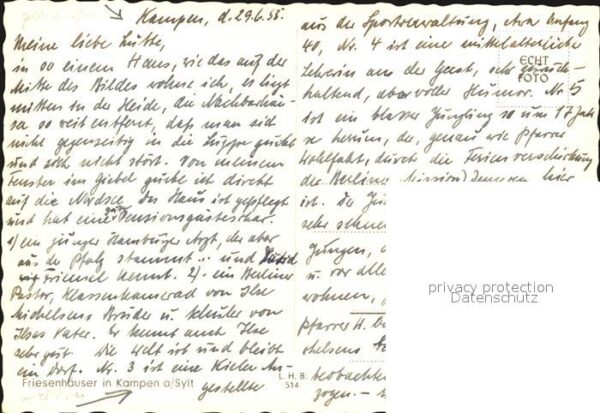 Kampen, d. 29.6.55.
Meine liebe Lütte,
in so einem Haus, wie das auf der
Mitte des Bildes wohne ich, es liegt
mitten in der Heide, die Nachbarhäu-
ser so weit entfernt, daß man sich
nicht gegenseitig in die Suppe guckt
und sich nicht stört. Von meinem
Fenster im Giebel gucke ich direkt
auf die Nordsee. Das Haus ist gepflegt
und hat eine Pensionsgästeschar.
1) ein junger Hamburger Arzt, der aber
aus der Pfalz stammt .. und
Friemel kennt. 2) ein Berliner
Pastor, Klassenkamerad von Ilse
Michelsens Bruder u. Schüler von
Ilses Vater. Er kennt auch Ilse
sehr gut. Die Welt ist und bleibt
ein Dorf. Nr. 3 ist eine Kieler An-
gestellte
Friesenhäuser in Kampen a/Sylt
L. H. B.
514
aus der Sportverwaltung, etwa Anfang
40, Nr. 4 ist eine mittelalterliche
aus der Geest, sehr
ECHT
FOTO
haltend, aber voller Humor. Nr. 5
ist ein blasser Jüngling so um 17 Jah-
re herum, der, genau wie Pfarrer
Wohlfahrt, durch die Ferienverschickung
der Berliner Mission hier
ist. Der
sehr
Jungen,
u. vor alle
wohnen,
Pfarrer H.
chelsens
beobachtet
zogen. –
privacy protection
Datenschutz